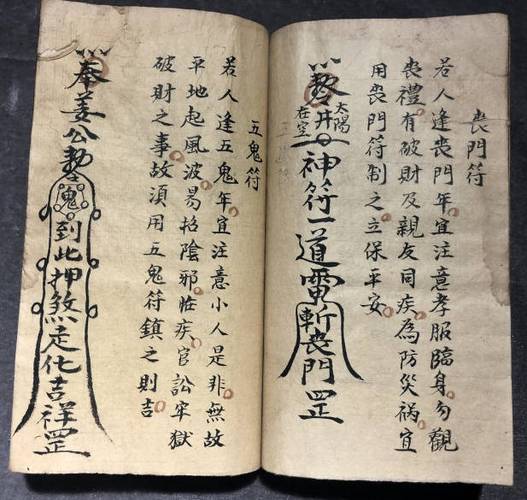 喪門符
若人逢喪門年宜注意孝服臨身勿觀
喪禮有破財及親友同疾為防災禍宜
用喪門符制之立保平安
太陽
在空
神符一道電斬喪門罡
五鬼符
若人逢五鬼年宜注意小人是非無故
平地起風波易招陰邪臨疾官訟牢獄
破財之事故須用五鬼符鎮之則吉
奉姜公勅鬼到此押煞走化吉祥罡